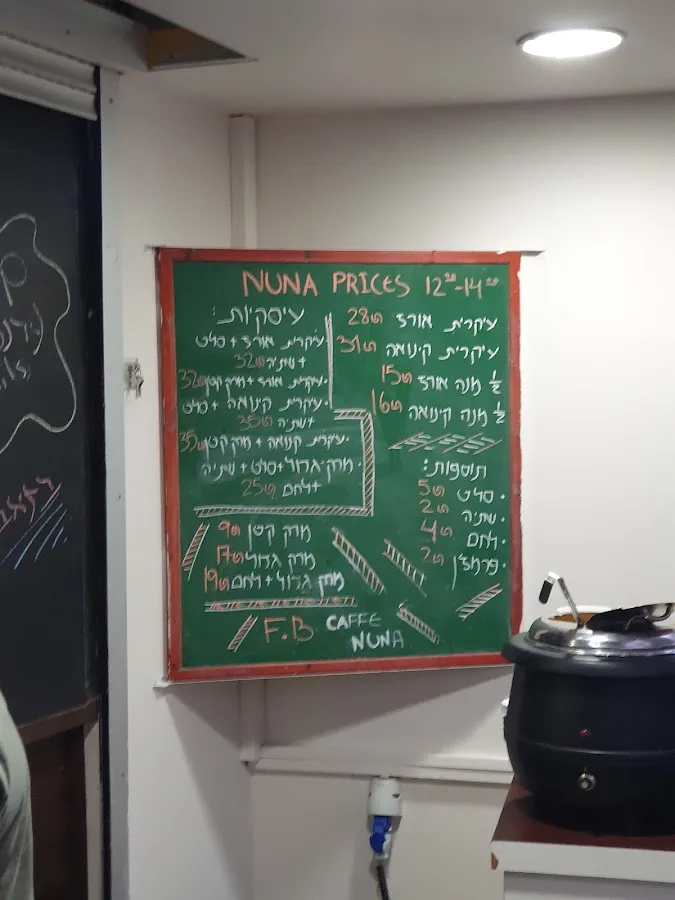 NUNA PRICES 12:30-14:30
עיקרית אורז 28₪
עיקרית קינואה 31₪
½ מנה אורז 15₪
½ מנה קינואה 16₪
תוספות:
· סלט 5₪
· שתיה 2₪
· לחם 4₪
· פרמז'ן 2₪
עיסקיות:
עיקרית אורז + סלט
+ שתיה 32₪
· עיקרית אורז + מרק קטן 32₪
עיקרית קינואה + סלט
+ שתיה 35₪
· עיקרית קינואה + מרק קטן 35₪
· מרק גדול + סלט + שתיה
+ לחם 25₪
מרק קטן 9₪
מרק גדול 17₪
מרק גדול + לחם 19₪
F.B CAFFE
NUNA